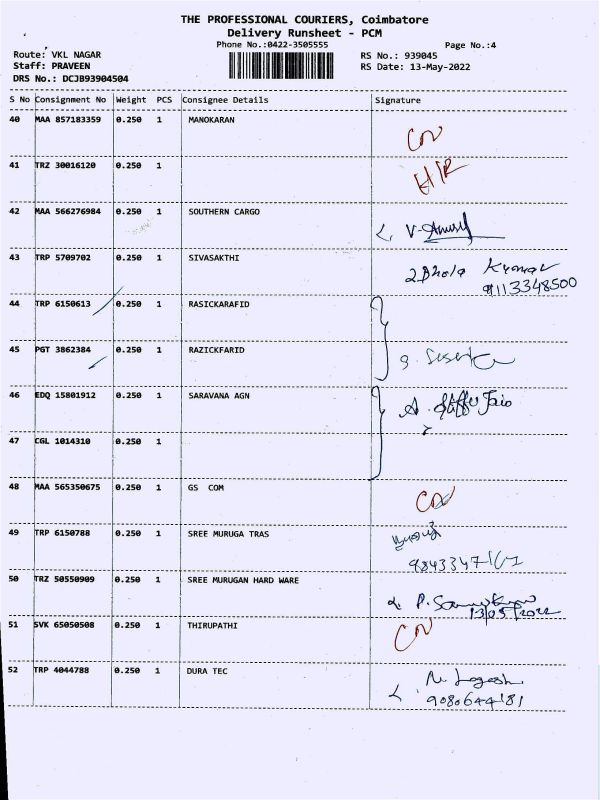 THE PROFESSIONAL COURIERS, Coimbatore
Delivery Runsheet - PCM
Phone No.:0422-3505555 Page No.:4
Route: VKL NAGAR RS No.: 939045
Staff: PRAVEEN RS Date: 13-May-2022
DRS No.: DCJB93904504
S No Consignment No Weight PCS Consignee Details Signature
40 MAA 857183359 0.250 1 MANOKARAN
41 TRZ 30016120 0.250 1
42 MAA 566276984 0.250 1 SOUTHERN CARGO
43 TRP 5709702 0.250 1 SIVASAKTHI
Kumar
9113348500
44 TRP 6150613 0.250 1 RASICKARAFID
45 PGT 3862384 0.250 1 RAZICKFARID
46 EDQ 15801912 0.250 1 SARAVANA AGN
47 CGL 1014310 0.250 1
48 MAA 565350675 0.250 1 GS COM
49 TRP 6150788 0.250 1 SREE MURUGA TRAS
50 TRZ 50550909 0.250 1 SREE MURUGAN HARD WARE
13/05/2022
51 SVK 65050508 0.250 1 THIRUPATHI
52 TRP 4044788 0.250 1 DURA TEC
N. Logesh
9080644181